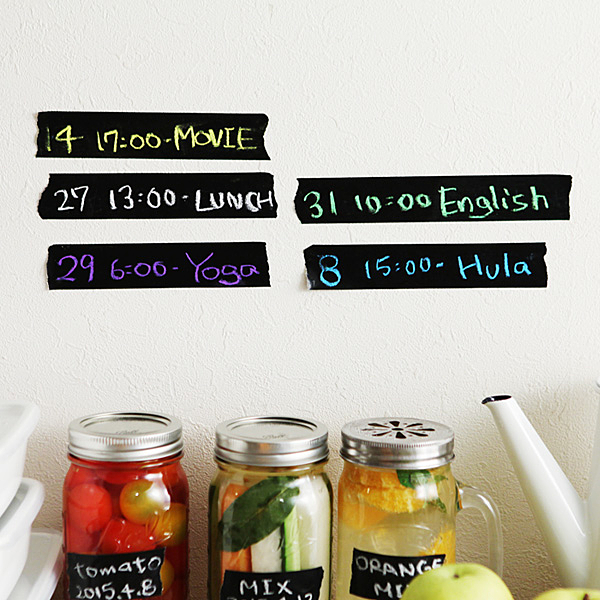 14 17:00-MOVIE
27 13:00-LUNCH
29 6:00-Yoga
31 10:00 English
8 15:00-Hula
tomato
2015.4.8
MIX
ORANGE